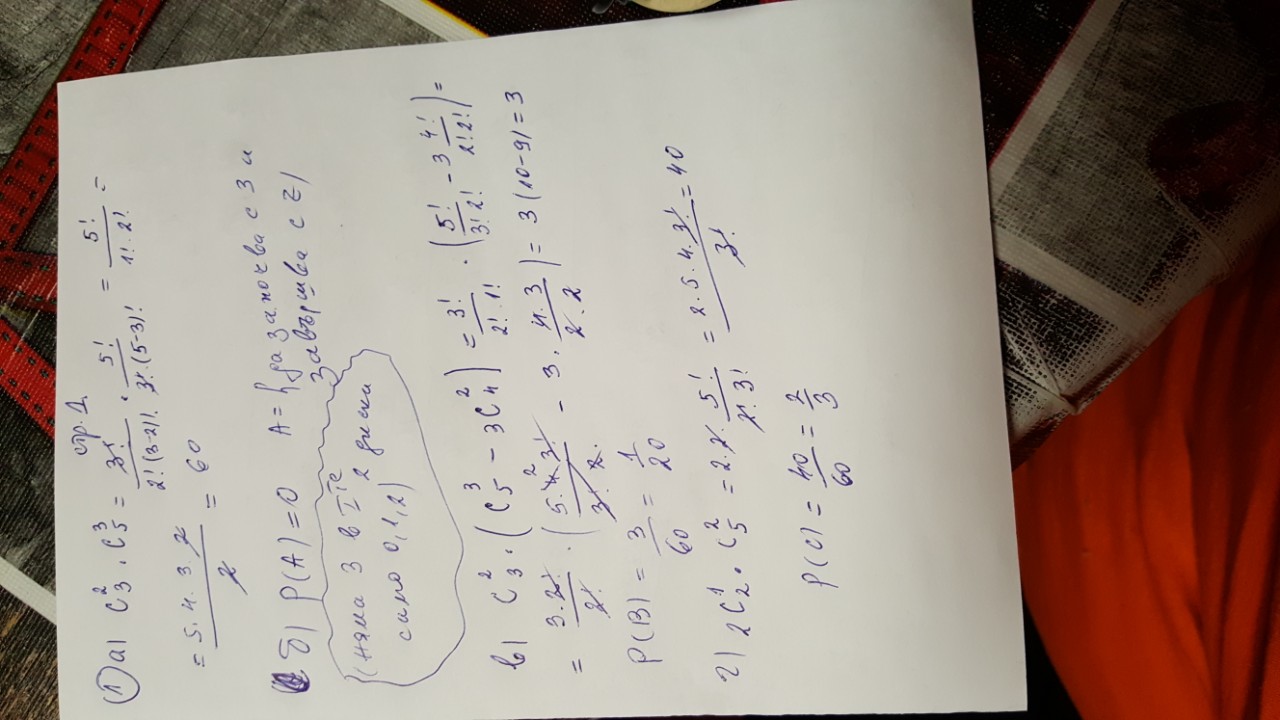 стр. 1.
① а) C₃² . C₅³ = 3!/(2!(3-2)!) . 5!/(3!.(5-3)!) = 5!/(1!.2!) =
= 5.4.3.2/2 = 60
б) P(A) = 0 A = {да започва с 3 и
завършва с z}
(няма 3 в I те 2 диска
само 0,1,2)
в) C₃² . (C₅³ - 3C₄²) = 3!/(2!.1!) . (5!/(3!2!) - 3 4!/(2!2!)) =
= 3.2!/2! . (5.4.3!/(3!.2.) - 3. 4.3/(2.2)) = 3(10-9) = 3
P(B) = 3/60 = 1/20
г) 2C₂¹ . C₅² = 2.2. 5!/(2.3!) = 2.5.4.3!/3! = 40
P(C) = 40/60 = 2/3